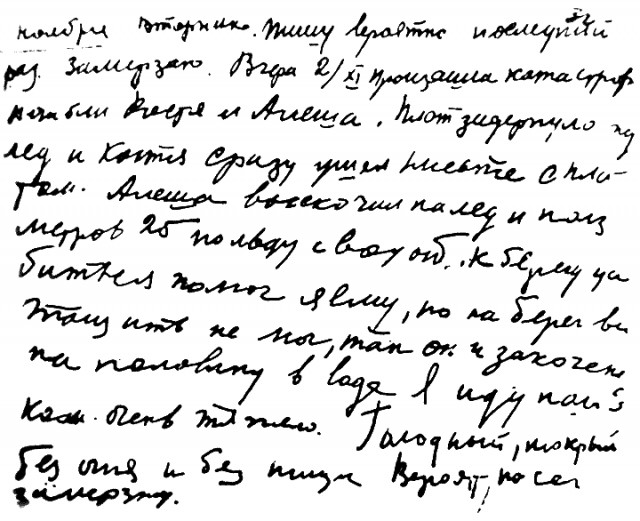 ноября вторник. Пишу вероятно последний
раз. Замерзаю. Вчера 2/XI произошла катастроф
погибли Костя и Алеша. Плот задернуло под
лед и Костя сразу ушел вместе с пло-
том. Алеша выскочил на лед и полз
метров 25 по льду с водой. К берегу
биться помог я ему, но на берег вы
тащить не мог, так он и закочене
на половину в воде Я иду ползком
очень тяжело. Голодный, мокрый
без огня и без пищи Вероят, но сег
замерзну.